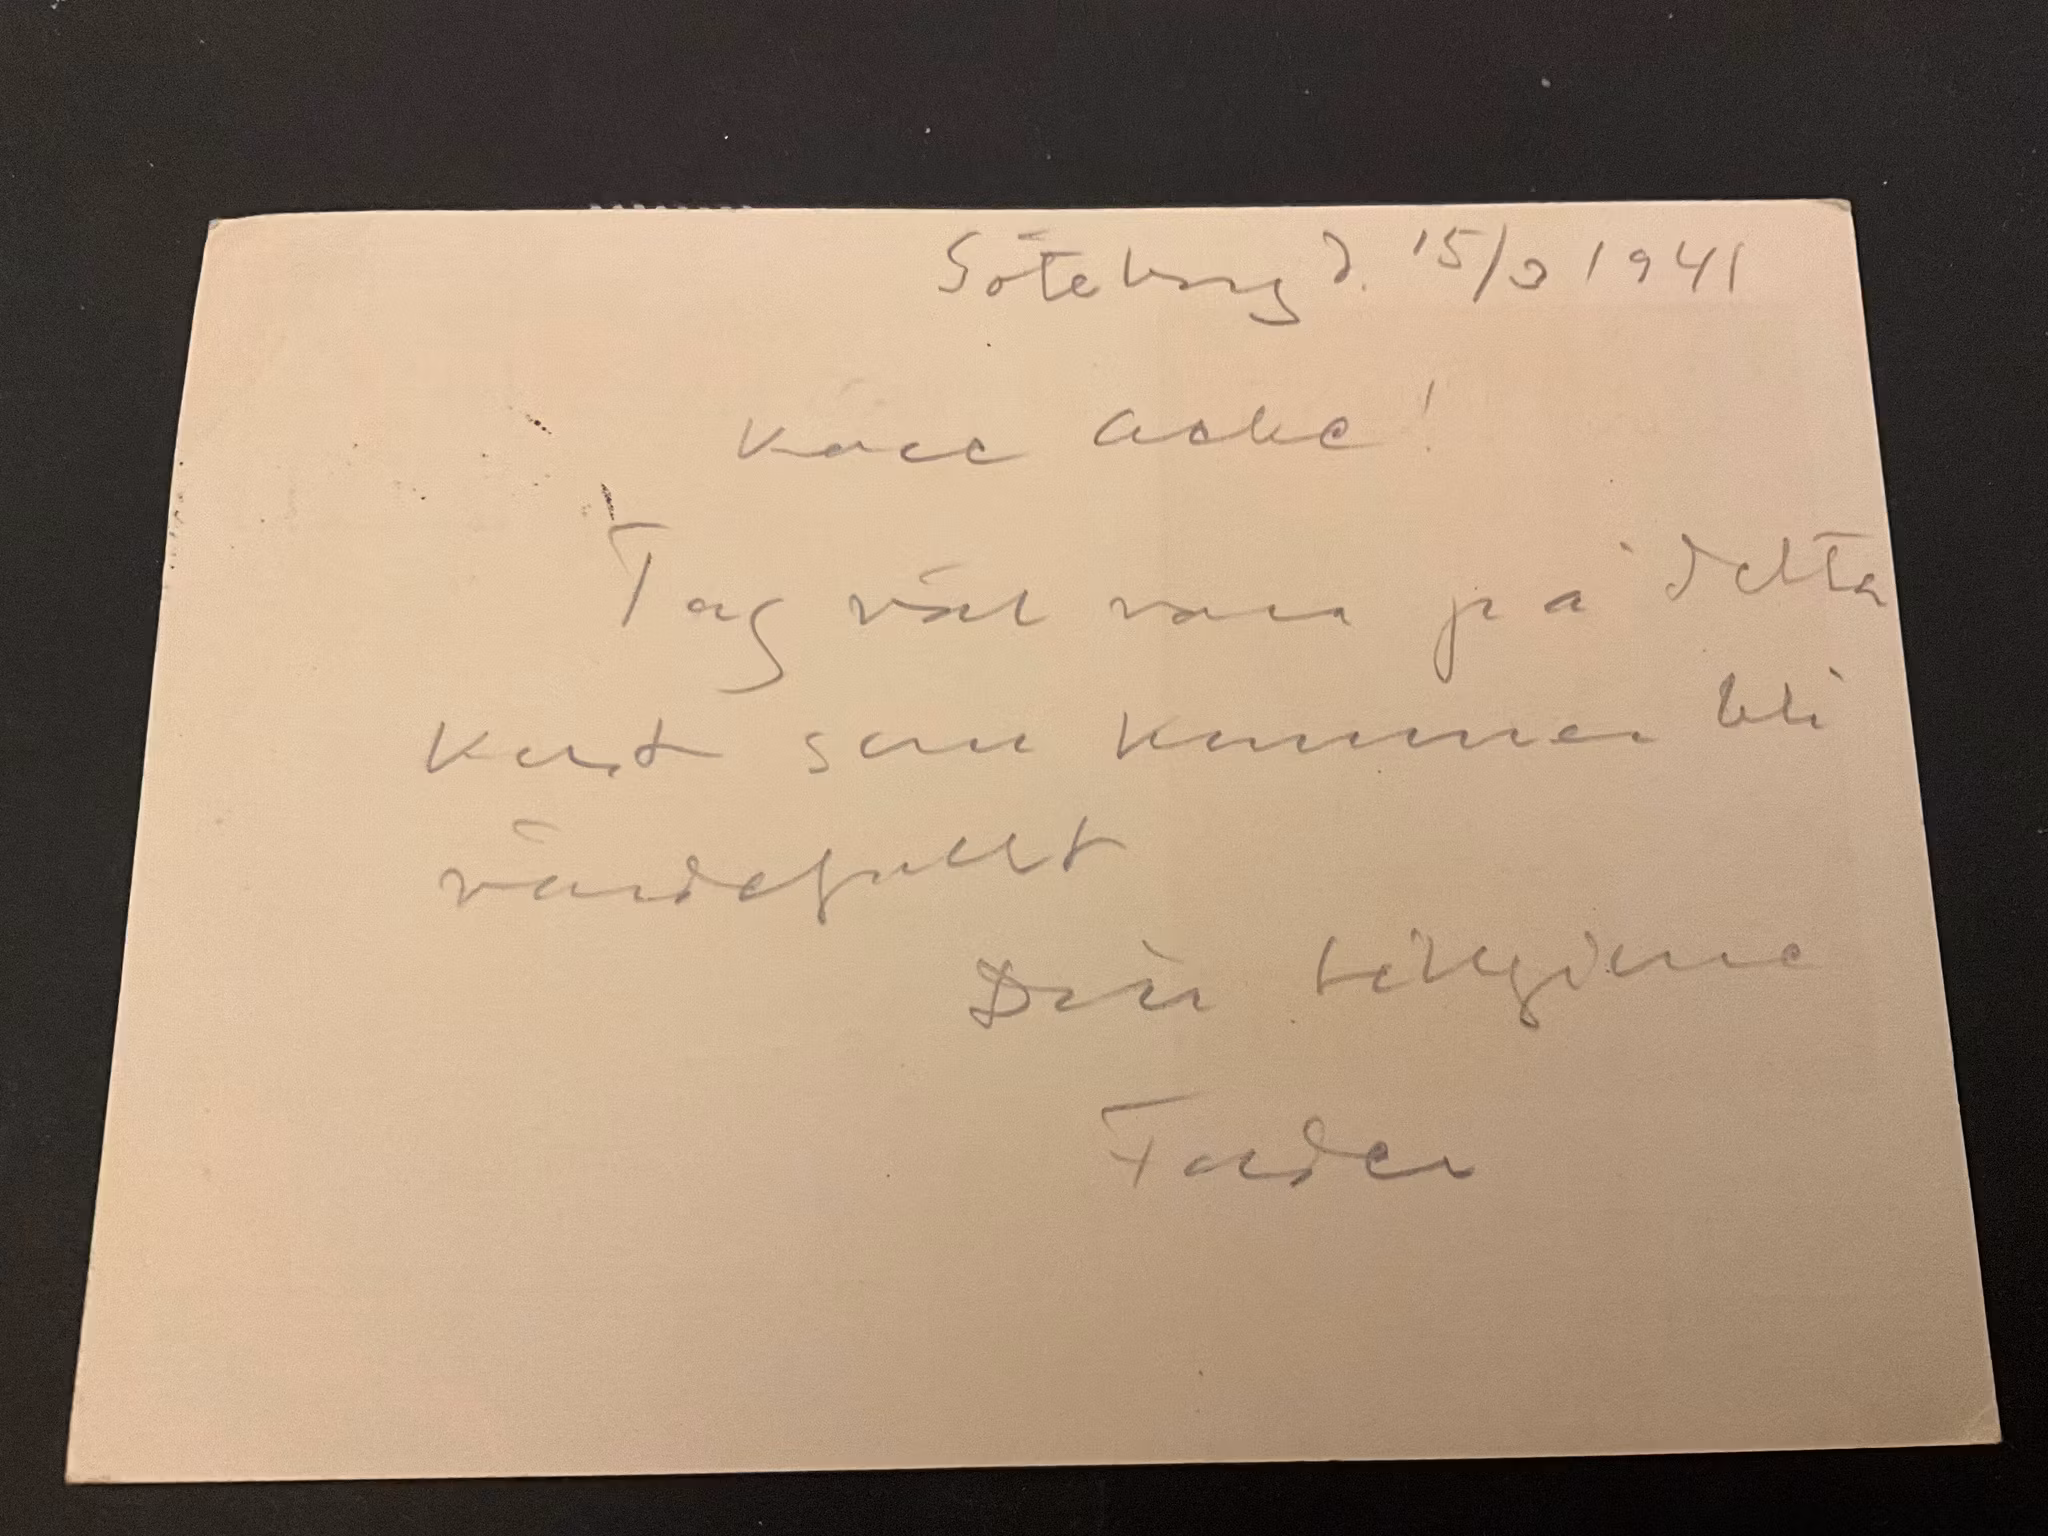 Göteborg d. 15/3 1941
Käre Acke!
Tag väl vara på detta
kort som kommer bli
värdefullt
Din tillgivne
Fader